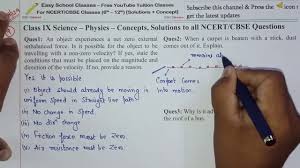 Easy School Classes - Free YouTube Tuition Classes
NCERT/CBSE Classes (6th - 12th) (Solutions + Concept)
Subscribe this Channel & Press the icon to
get the latest updates
Class IX Science – Physics – Concepts, Solutions to all NCERT/CBSE Questions
Ques1: An object experiences a net zero external
unbalanced force. Is it possible for the object to be
travelling with a non-zero velocity? If yes, state the
conditions that must be placed on the magnitude and
direction of the velocity. If no, provide a reason.
Yes it is possible
i) Object should already be moving in
uniform Speed in Straight line Path
ii) No change in Speed
iii) No dir change
iv) Friction force must be Zero.
v) Air resistance must be Zero.
Ques2: When a carpet is beaten with a stick, dust
comes out of it. Explain.
Carpet comes
into motion
Ques3: Why
the roof of a bus